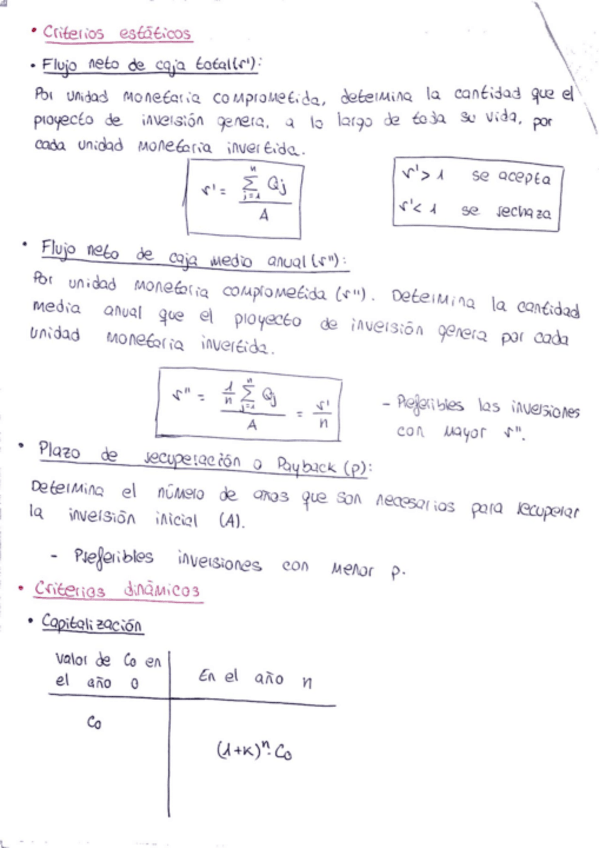 • Criterios estáticos
• Flujo neto de caja total (r'):
Por unidad monetaria comprometida, determina la cantidad que el
proyecto de inversión genera, a lo largo de toda su vida, por
cada unidad monetaria invertida.
r' = (∑_{j=1}^{n} Qj) / A
r' > 1 se acepta
r' < 1 se rechaza
• Flujo neto de caja medio anual (r''):
Por unidad monetaria comprometida (r''). Determina la cantidad
media anual que el proyecto de inversión genera por cada
unidad monetaria invertida.
r'' = (1/n ∑_{j=1}^{n} Qj) / A = r' / n
- Preferibles las inversiones
con mayor r''.
• Plazo de recuperación o Payback (p):
Determina el número de anos que son necesarios para recuperar
la inversión inicial (A).
- Preferibles inversiones con menor p.
• Criterios dinámicos
• Capitalización
Valor de Co en
el año 0
En el año n
Co
(1+K)^n · Co